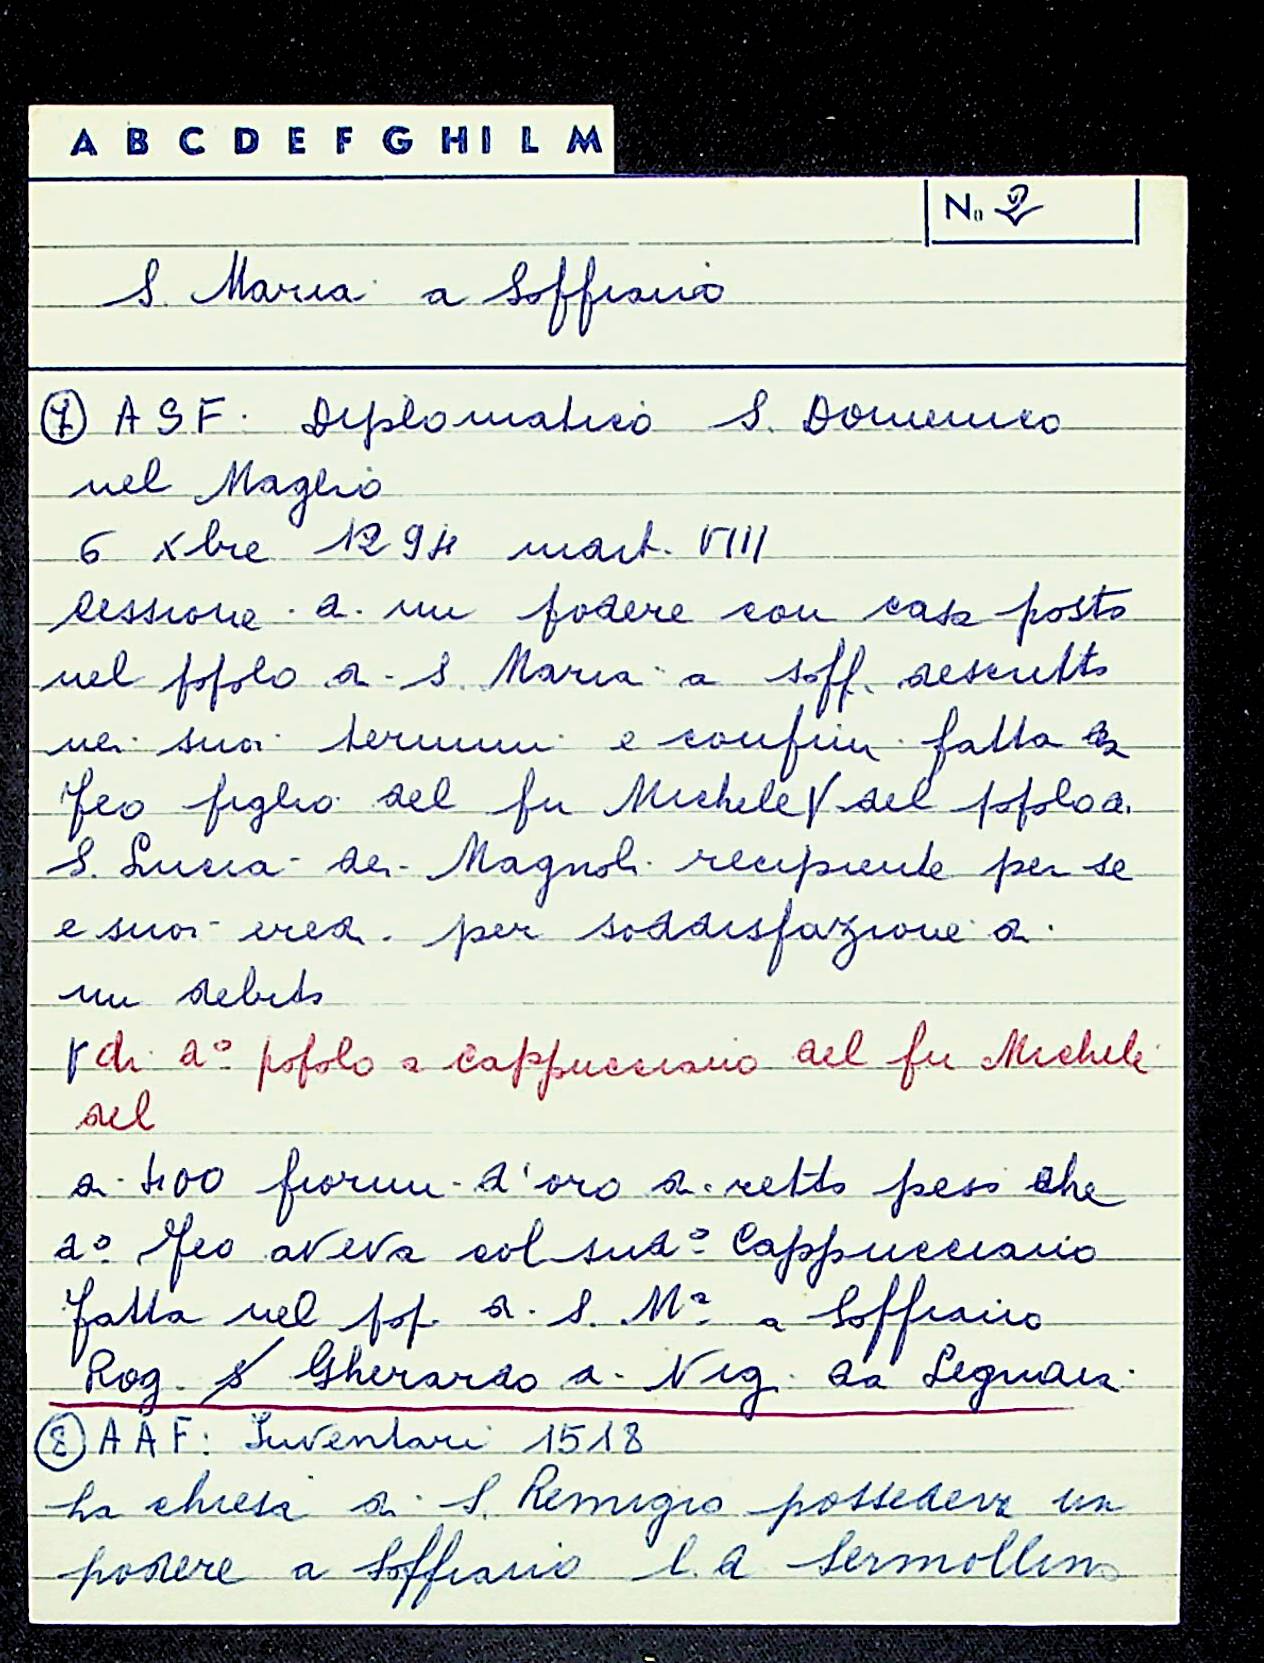 A B C D E F G H I L M
No 2
S. Maria a Soffiano
7 ASF: Diplomatico S. Domenico
nel Maglio
6 xbre 1294 indict. VIII
cessione di un podere con casa posto
nel popolo di S. Maria a Soff. descritto
nei suoi termini e confini fatta a
Feo figlio del fu Michele √ del popolo di
S. Lucia dei Magnoli recipiente per se
e suoi eredi per soddisfazione di
un debito
√ di do popolo a Cappucciano del fu Michele
del
di 400 fiorini d'oro di retto peso che
do Feo aveva col sudo Cappucciano
fatta nel pop. di S. Ma a Soffiano
Rog. S Gherardo di Nig. da Legnaia
8 AAF: Inventari 1518
La chiesa di S. Remigio possedeva un
podere a Soffiano l. d. Sermollino